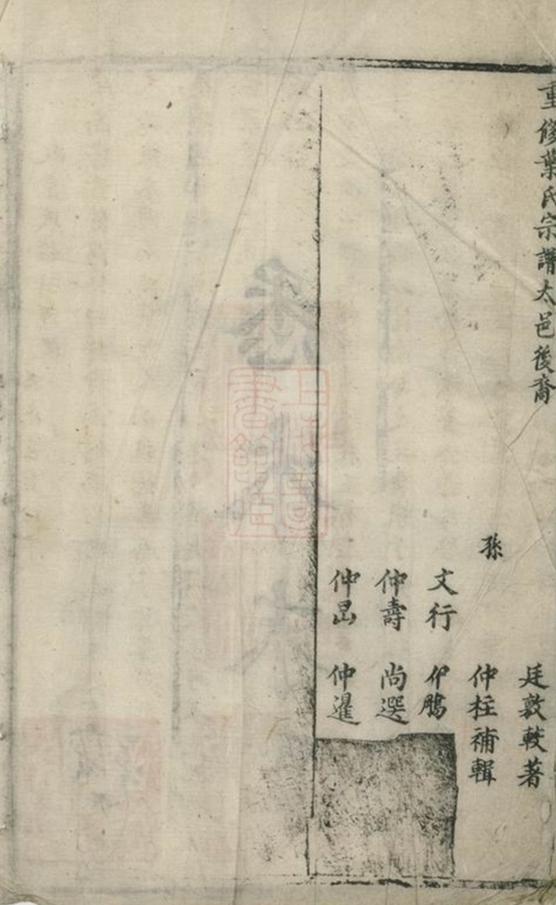 重修葉氏宗譜太邑後裔
廷敦較著
孫 仲柱補輯
文行 仲鵬
仲壽 尚選
仲昌 仲暹
上海圖書館藏